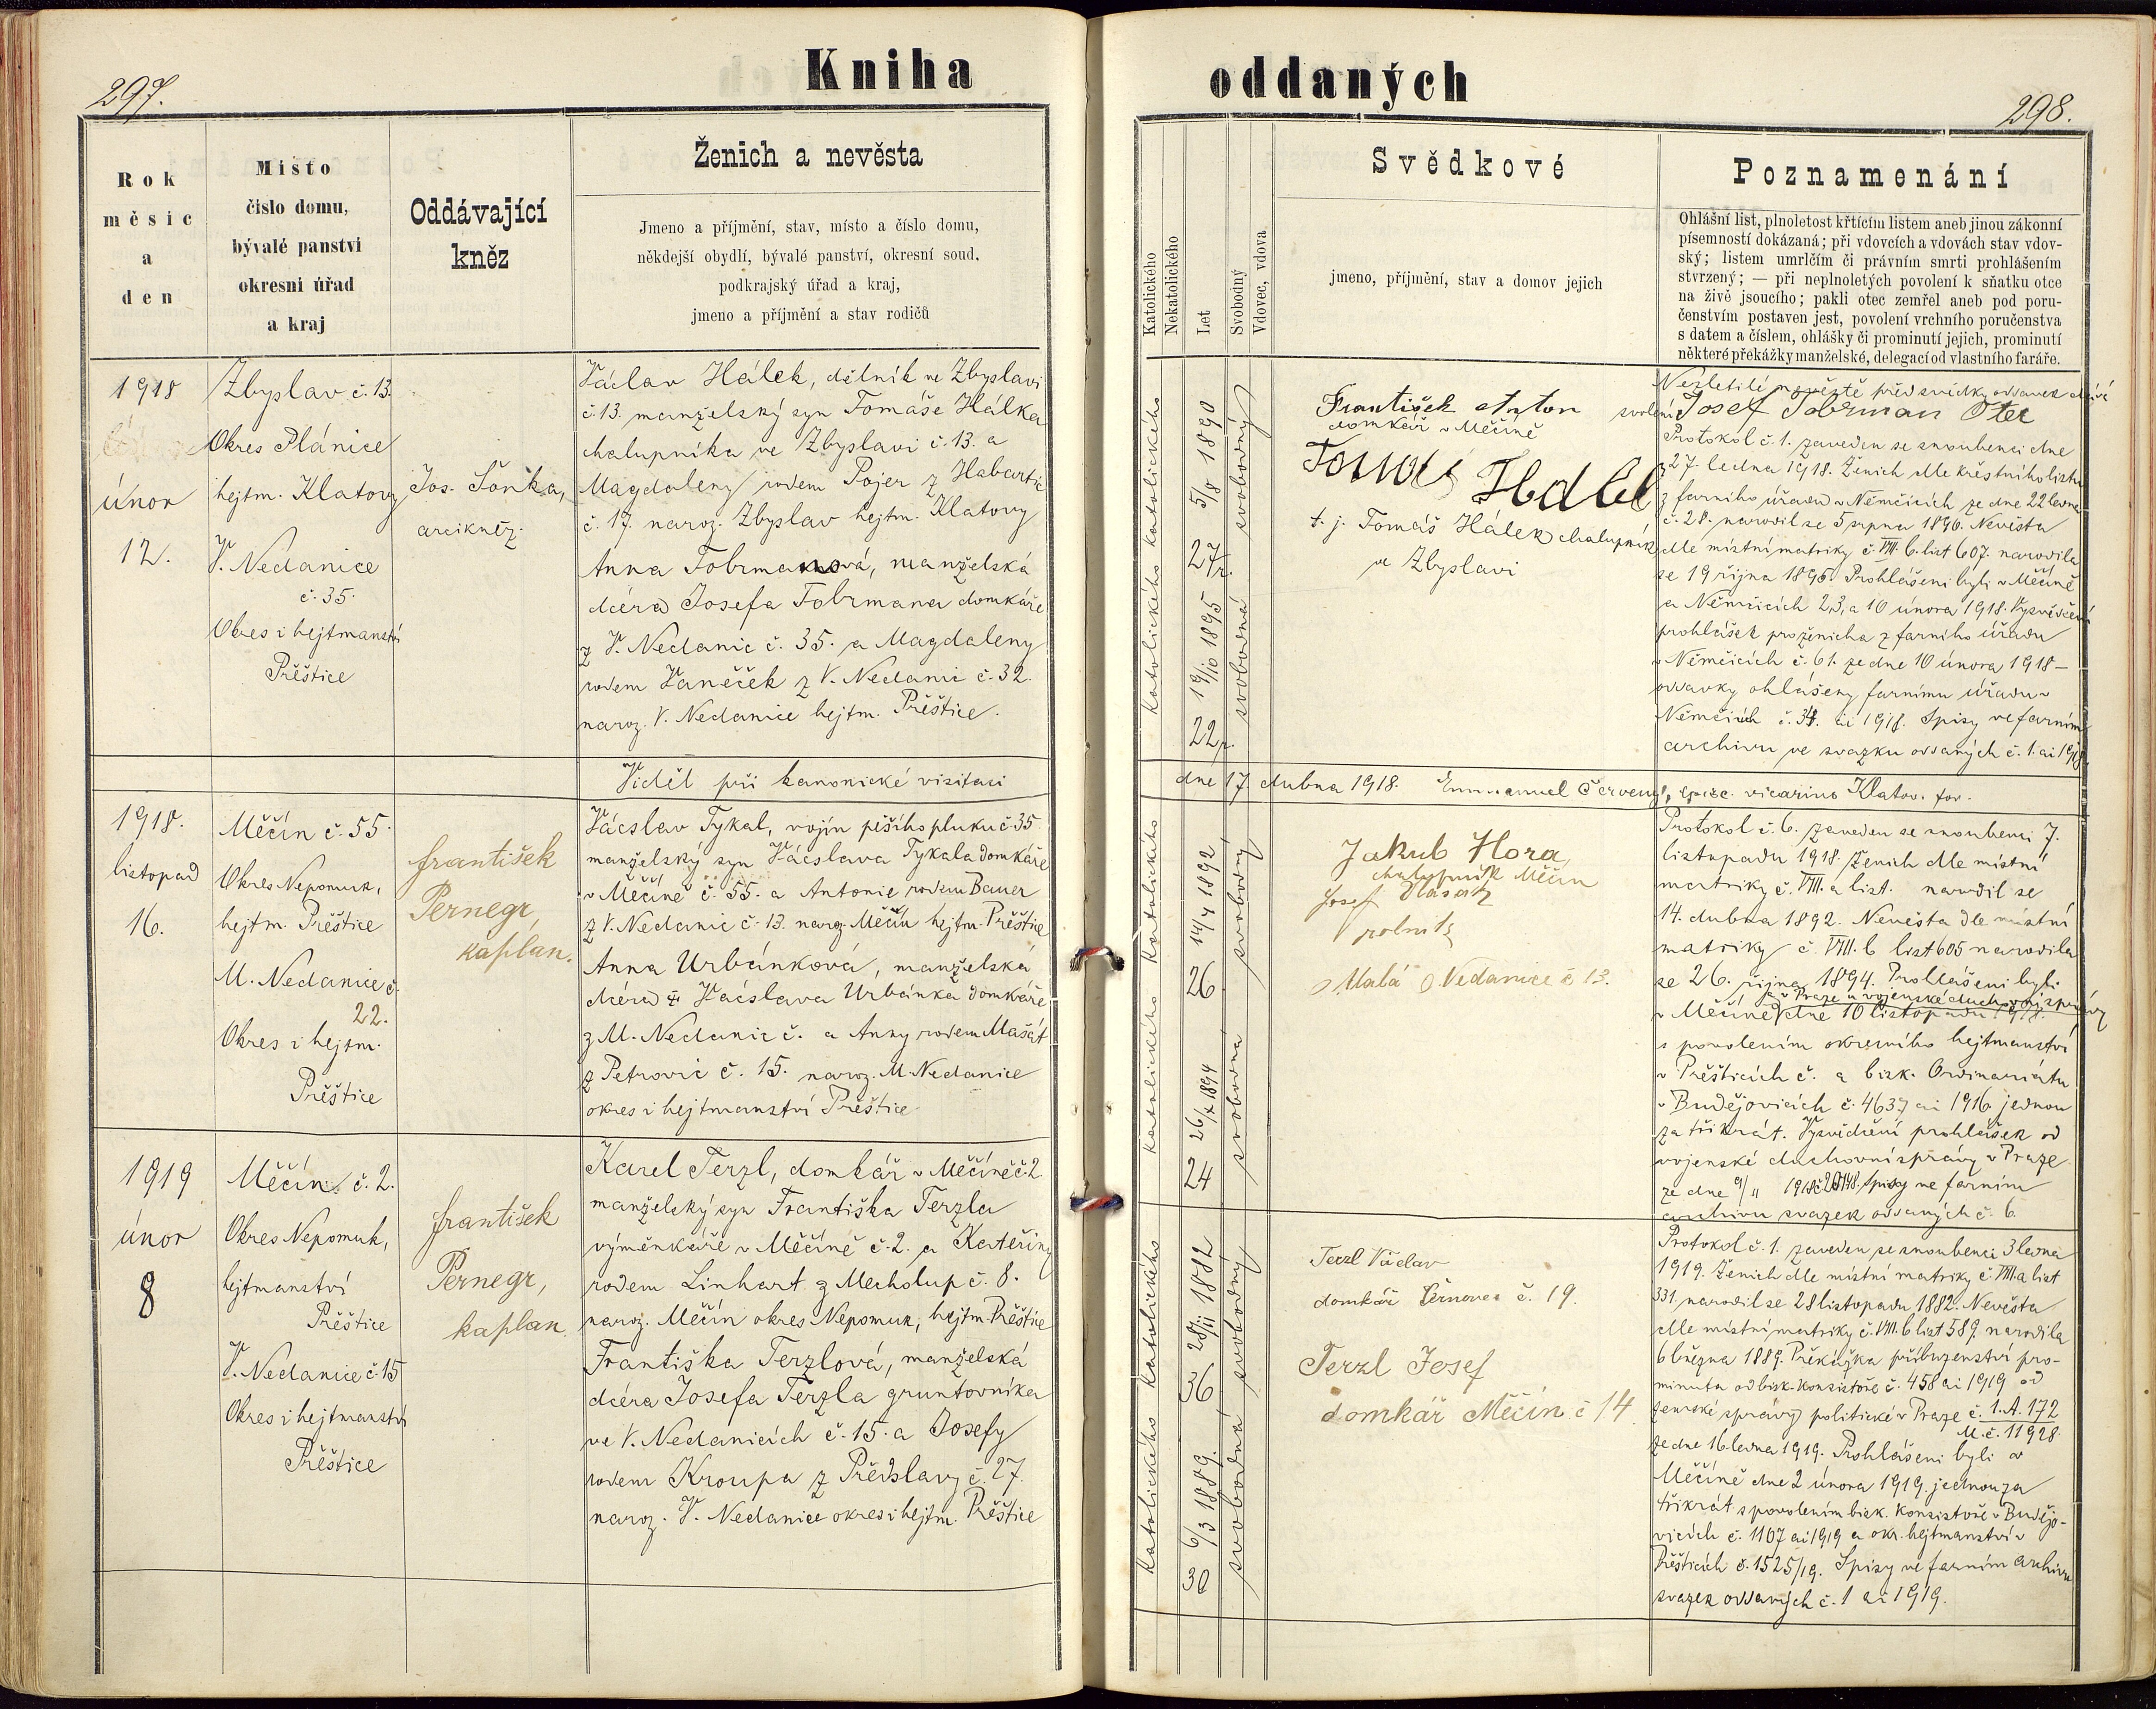 297.
Kniha
Rok
měsíc
a
den
Místo
číslo domu,
bývalé panství
okresní úřad
a kraj
Oddávající
kněz
Ženich a nevěsta
Jmeno a příjmění, stav, místo a číslo domu,
někdejší obydlí, bývalé panství, okresní soud,
podkrajský úřad a kraj,
jmeno a příjmění a stav rodičů
1918
únor
12.
Zbyslav č. 13.
Okres Plánice
hejtm. Klatovy
V. Nedanice
č. 35.
Okres i hejtmanství
Přeštice
Jos. Šonka,
arcikněz.
Václav Hálek, dělník ve Zbyslavi
č. 13. manželský syn Tomáše Hálka
chalupníka ve Zbyslavi č. 13. a
Magdaleny rodem Pojer z Habartic
č. 17. naroz. Zbyslav hejtm. Klatovy
Anna Tobrmanová, manželská
dcera Josefa Tobrmana domkáře
z V. Nedanic č. 35. a Magdaleny
rodem Vaněček z V. Nedanic č. 32.
naroz. V. Nedanice hejtm. Přeštice.
Viděl při kanonické visitaci
1918.
listopad
16.
Měčín č. 55.
Okres Nepomuk,
hejtm. Přeštice
M. Nedanice č.
22.
Okres i hejtm.
Přeštice
František
Pernegr,
kaplan.
Vácslav Tykal, vojín pěšího pluku č. 35
manželský syn Vácslava Tykala domkáře
v Měčíně č. 55. a Antonie rodem Bauer
z V. Nedanic č. 13. naroz. Měčín hejtm. Přeštice
Anna Urbánková, manželská
dcera Vácslava Urbánka domkáře
z M. Nedanic č. a Anny rodem Mašát
z Petrovic č. 15. naroz. M. Nedanice
okres i hejtmanství Přeštice
1919
únor
8
Měčín č. 2.
Okres Nepomuk,
hejtmanství
Přeštice
V. Nedanice č. 15
Okres i hejtmanství
Přeštice
František
Pernegr,
kaplan.
Karel Terzl, domkář v Měčíně č. 2
manželský syn Františka Terzla
výměnkáře v Měčíně č. 2. a Kateřiny
rodem Linhart z Mecholup č. 8.
naroz. Měčín okres Nepomuk, hejtm. Přeštice
Františka Terzlová, manželská
dcera Josefa Terzla gruntovníka
ve V. Nedanicích č. 15. a Josefy
rodem Kroupa z Předslavy č. 27.
naroz. V. Nedanice okres i hejtm. Přeštice
oddaných
298.
Katolického
Nekatolického
Let
Svobodný
Vdovec, vdova
Svědkové
jmeno, příjmění, stav a domov jejich
Poznamenání
Ohlášní list, plnoletost křtícím listem aneb jinou zákonní
písemností dokázaná; při vdovcích a vdovách stav vdov-
ský; listem umrlčím či právním smrti prohlášením
stvrzený; — při neplnoletých povolení k sňatku otce
na živě jsoucího; pakli otec zemřel aneb pod poru-
čenstvím postaven jest, povolení vrchního poručenstva
s datem a číslem, ohlášky či prominutí jejich, prominutí
některé překážky manželské, delegací od vlastního faráře.
Katolického
27 5/8 1890
svobodný
Katolického
22 19/10 1895
svobodná
František Anton
domkář v Měčíně
Tomáš Hálek
t. j. Tomáš Hálek chalupník
ve Zbyslavi
Nezletilé nevěstě před svědky oddavek dává
svolení Josef Tobrman Otec
Protokol č. 1. zaveden se snoubenci dne
27. ledna 1918. Ženich dle křestního listu
z farního úřadu v Němčicích ze dne 22 ledna
č. 28. narodil se 5 srpna 1890. Nevěsta
dle místní matriky č. VIII. b. list 607. narodila
se 19 října 1895. Prohlášeni byli v Měčíně
a Němčicích 2, 3, a 10 února 1918. Vysvědčení
prohlášek pro ženicha z farního úřadu
v Němčicích č. 61. ze dne 10 února 1918 —
oddavky ohlášeny farnímu úřadu v
Němčicích č. 34. ai 1918. Spisy ve farním
archivu ve svazku oddaných č. 1. ai 1918
dne 17. dubna 1918. Emmanuel Červený, vicarius Klatov. for.
Katolického
26 14/4 1892
svobodný
Katolického
24 26/X 1894
svobodná
Jakub Hora,
chalupník Měčín
Josef
rolník
z Malá Nedanice č 13.
Protokol č. 6. zaveden se snoubenci 7.
listopadu 1918. Ženich dle místní
matriky č. VIII. a list. narodil se
14. dubna 1892. Nevěsta dle místní
matriky č. VIII. b list 605 narodila
se 26. října 1894. Prohlášeni byli
v Praze u vojenské duchovní správy
v Měčíně dne 10 listopadu 1918.
s povolením okresního hejtmanství
v Přešticích č. a bisk. Ordinariátu
v Budějovicích č. 4637 ai 1916 jednou
za třikrát. Vysvědčení prohlášek od
vojenské duchovní správy v Praze
ze dne 9/11 1918 Spisy ve farním
archivu svazek oddaných č. 6.
Katolického
36 28/11 1882
svobodný
Katolického
30 6/3 1889.
svobodná
Terzl Václav
domkář č. 19.
Terzl Josef
domkář Měčín č 14
Protokol č. 1. zaveden se snoubenci 3 ledna
1919. Ženich dle místní matriky č. VIII. a list
331. narodil se 28 listopadu 1882. Nevěsta
dle místní matriky č. VIII. b list 589. narodila
6 března 1889. Překážka příbuzenství pro-
minuta od bisk. Konsistoře č. 458 ai 1919 od
zemské správy politické v Praze č. 1. A. 172
M. č. 11928.
ze dne 16 ledna 1919. Prohlášeni byli v
Měčíně dne 2 února 1919. jednou za
třikrát s povolením bisk. Konsistoře v Budějo-
vicích č. 1107 ai 1919 a okr. hejtmanství v
Přešticích č. 1525/19. Spisy ve farním archivu
svazek oddaných č. 1 ai 1919.